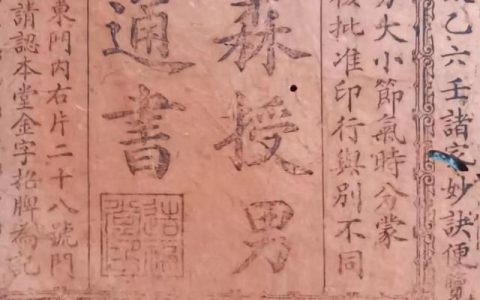 乙六壬諸家妙訣便覽
大小節氣時分蒙
核批准印行與別不同
森授男
通書
東門內右片二十八號門
請認本堂金字招牌為記